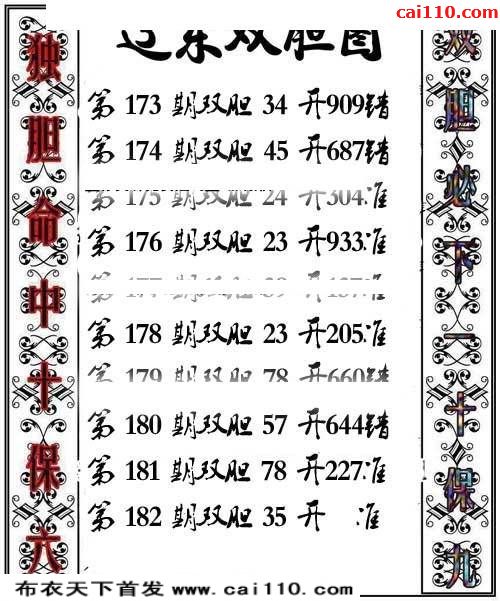 cai110.com
东双胆图
独胆命中十保六
第 173 期双胆 34 开909错
第 174 期双胆 45 开687错
第 175 期双胆 24 开304准
第 176 期双胆 23 开933准
第 178 期双胆 23 开205准
第 179 期双胆 78 开660错
第 180 期双胆 57 开644错
第 181 期双胆 78 开227准
第 182 期双胆 35 开 准
双胆必下一十保九
布衣天下首发 www.cai110.com